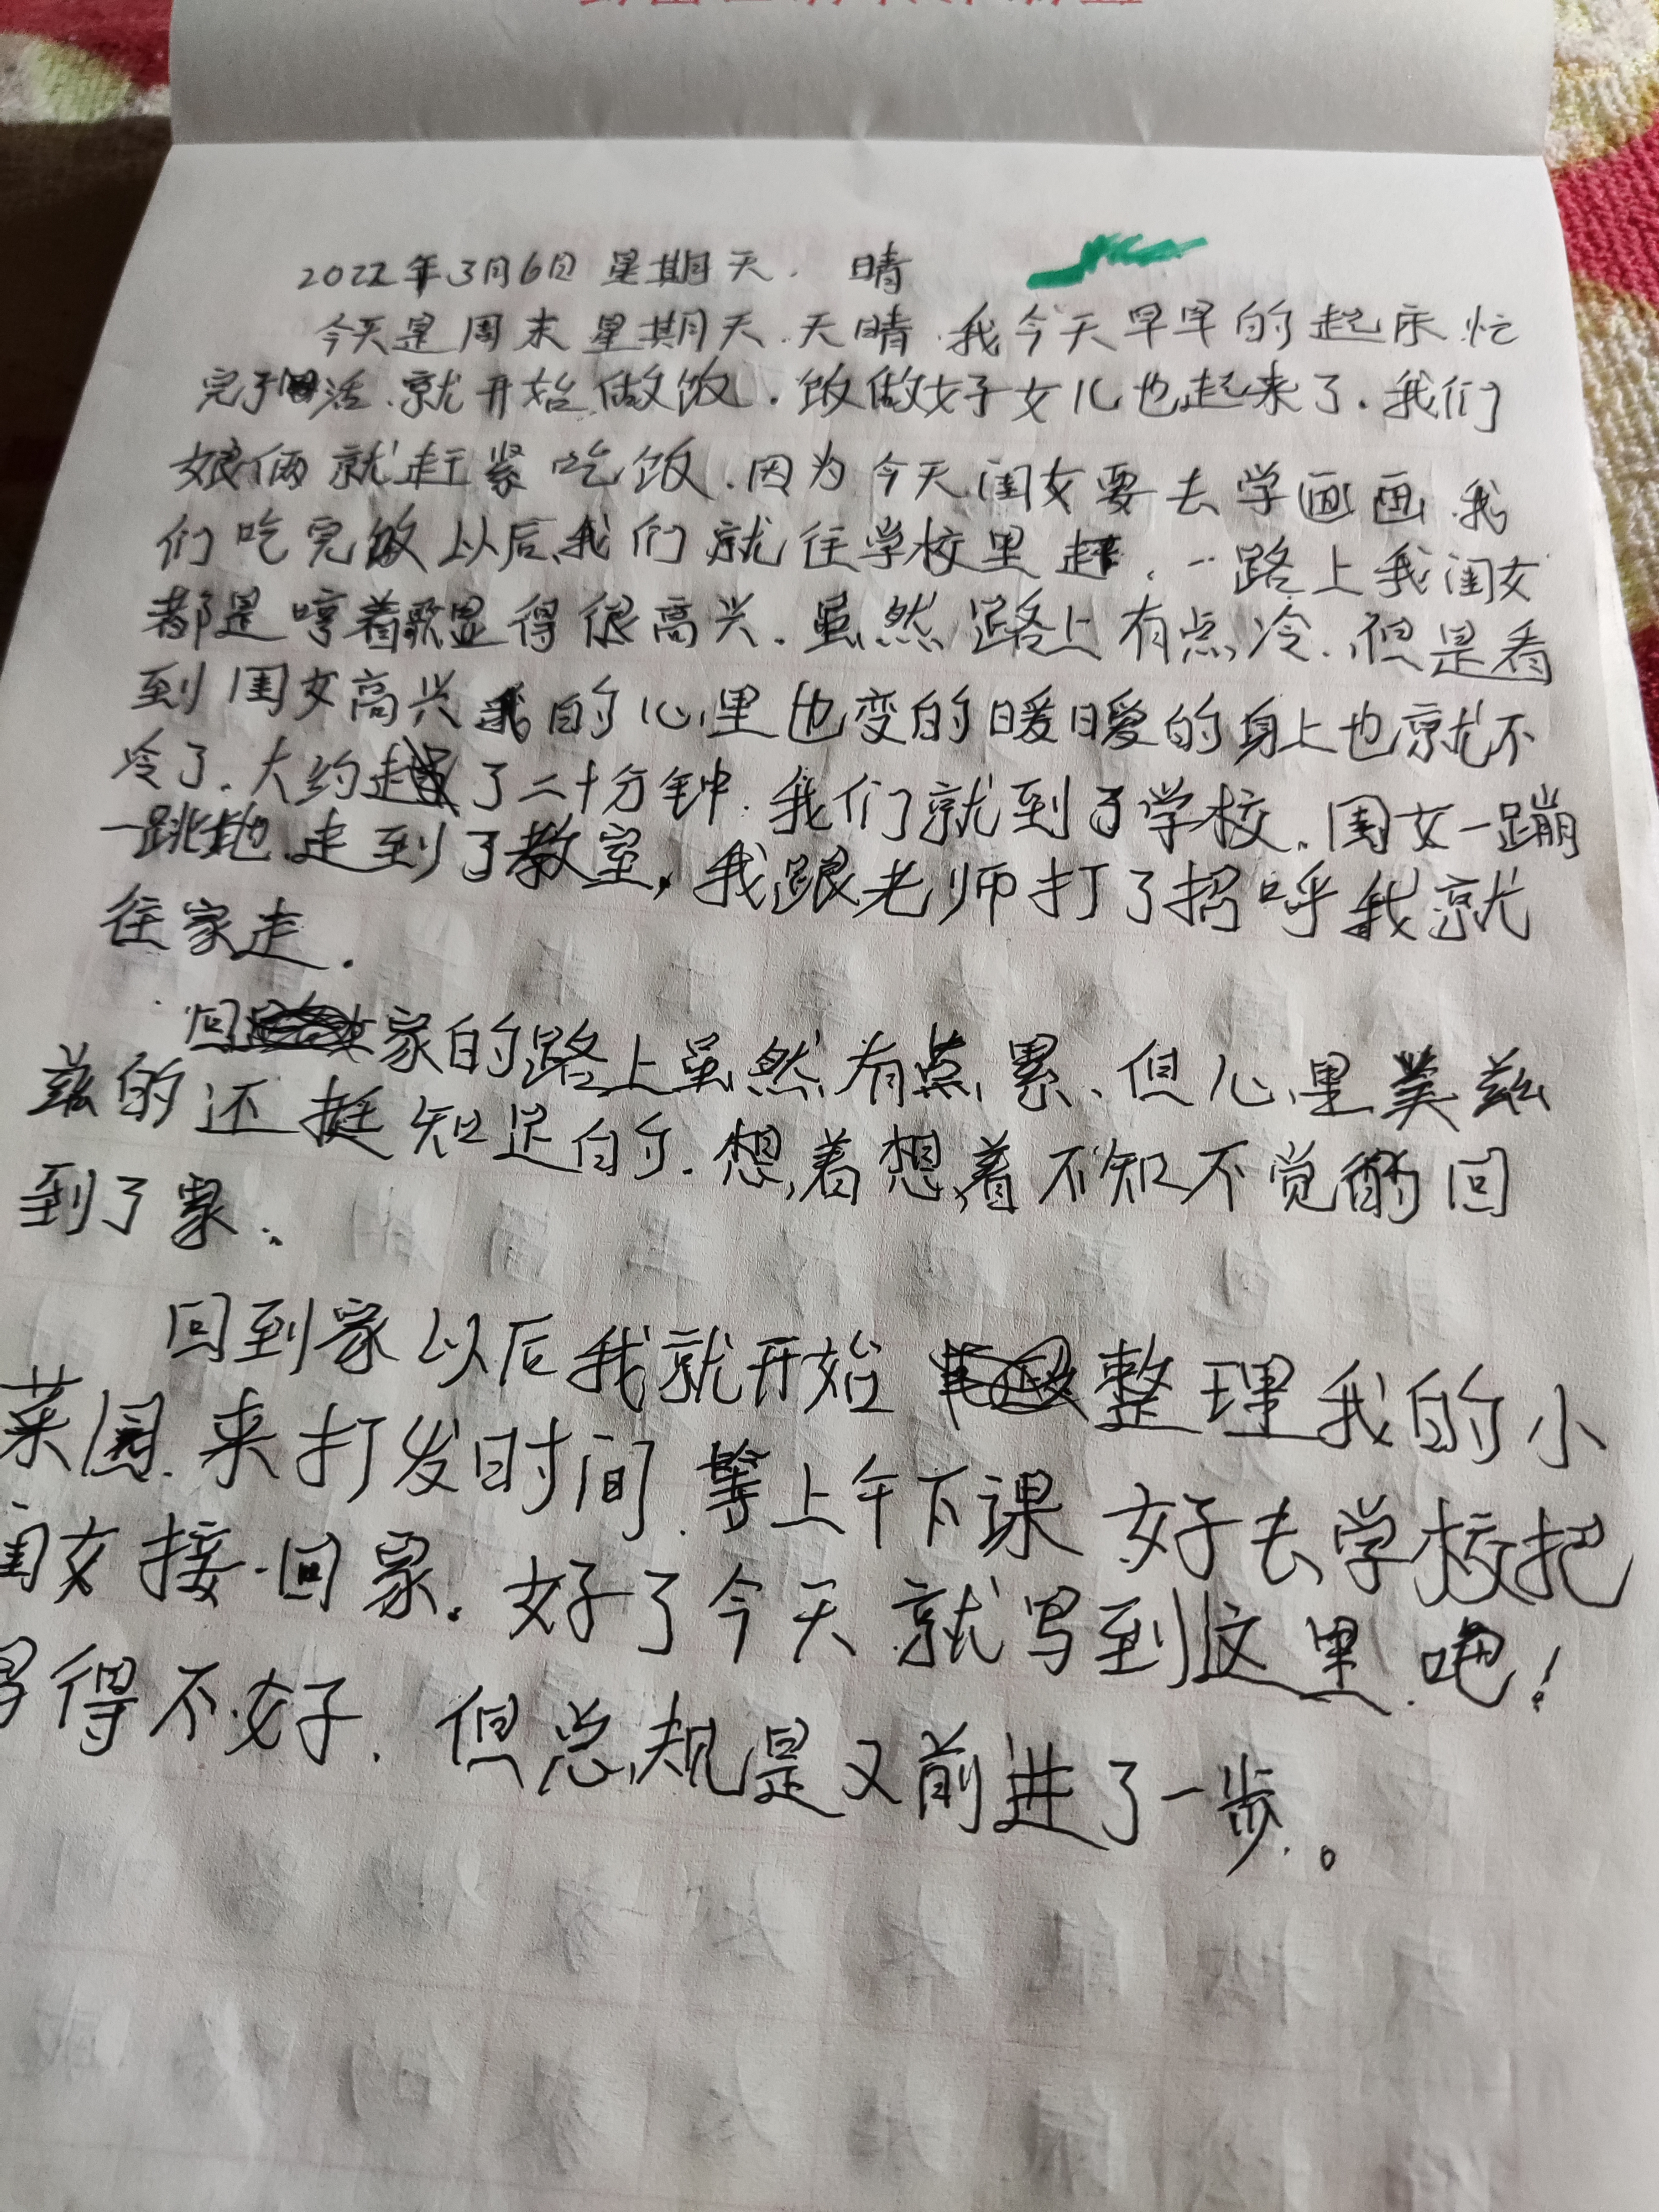 2022年3月6日 星期天. 晴
今天是周末星期天.天晴.我今天早早的起床忙
完了活.就开始做饭.饭做好女儿也起来了.我们
娘俩就赶紧吃饭.因为今天闺女要去学画画.我
们吃完饭以后,我们就往学校里赶.一路上我闺女
都是哼着歌显得很高兴.虽然路上有点冷.但是看
到闺女高兴我的心里也变的暖暖的身上也就不
冷了.大约走了二十分钟.我们就到了学校.闺女一蹦
一跳地走到了教室,我跟老师打了招呼我就
往家走.
回家的路上虽然有点累、但心里美兹
兹的还挺知足的.想着想着不知不觉的回
到了家.
回到家以后我就开始整理我的小
菜园.来打发时间.等上午下课好去学校把
闺女接回家.好了今天就写到这里吧!
写得不好.但总规是又前进了一步.。